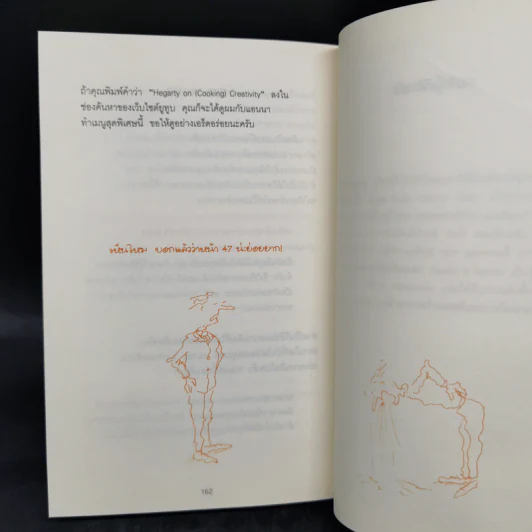 ถ้าคุณพิมพ์คำว่า “Hegarty on (Cooking) Creativity” ลงใน
ช่องค้นหาของเว็บไซต์ยูทูบ คุณก็จะได้ดูผมกับแอนนา
ทำเมนูสุดพิเศษนี้ ขอให้ดูอย่างเอร็ดอร่อยนะครับ
เห็นไหม บอกแล้วว่าหน้า 47 น่ะย่อยยาก!
162